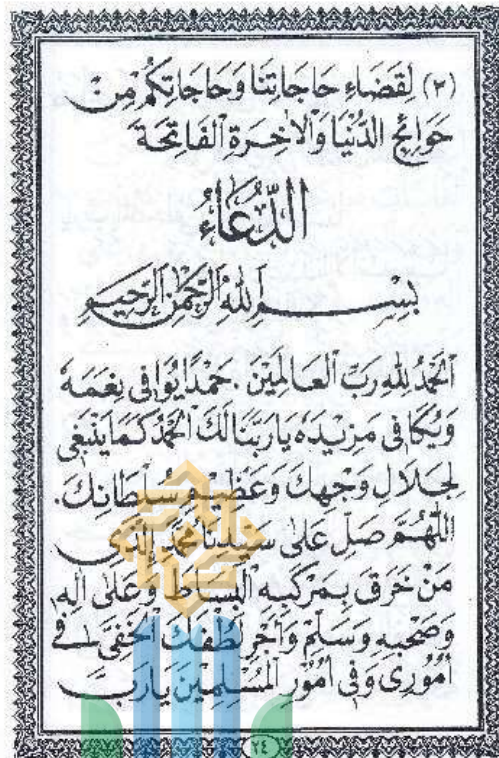 (٣) لِقَضَاءِ حَاجَاتِنَا وَحَاجَاتِكُمْ مِنْ
حَوَائِجِ الدُّنْيَا وَالْاٰخِرَةِ الْفَاتِحَةَ
الدُّعَاءُ
بِسْمِ اللّٰهِ الرَّحْمٰنِ الرَّحِيْمِ
اَلْحَمْدُ لِلّٰهِ رَبِّ الْعَالَمِيْنَ . حَمْدًا يُوَافِى نِعَمَهُ
وَيُكَافِى مَزِيْدَهُ يَا رَبَّنَا لَكَ الْحَمْدُ كَمَا يَنْبَغِى
لِجَلَالِ وَجْهِكَ وَعَظِيْمِ سُلْطَانِكَ .
اَللّٰهُمَّ صَلِّ عَلٰى سَيِّدِنَا مُحَمَّدٍ
مَنْ خَرَقَ بِمَرْكَبِهِ الْبِسَاطَ وَعَلٰى اٰلِهِ
وَصَحْبِهِ وَسَلِّمْ وَاَجْرِ لُطْفَكَ الْخَفِيَّ فِى
اُمُوْرِى وَفِى اُمُوْرِ الْمُسْلِمِيْنَ يَا رَبَّ
٢٤